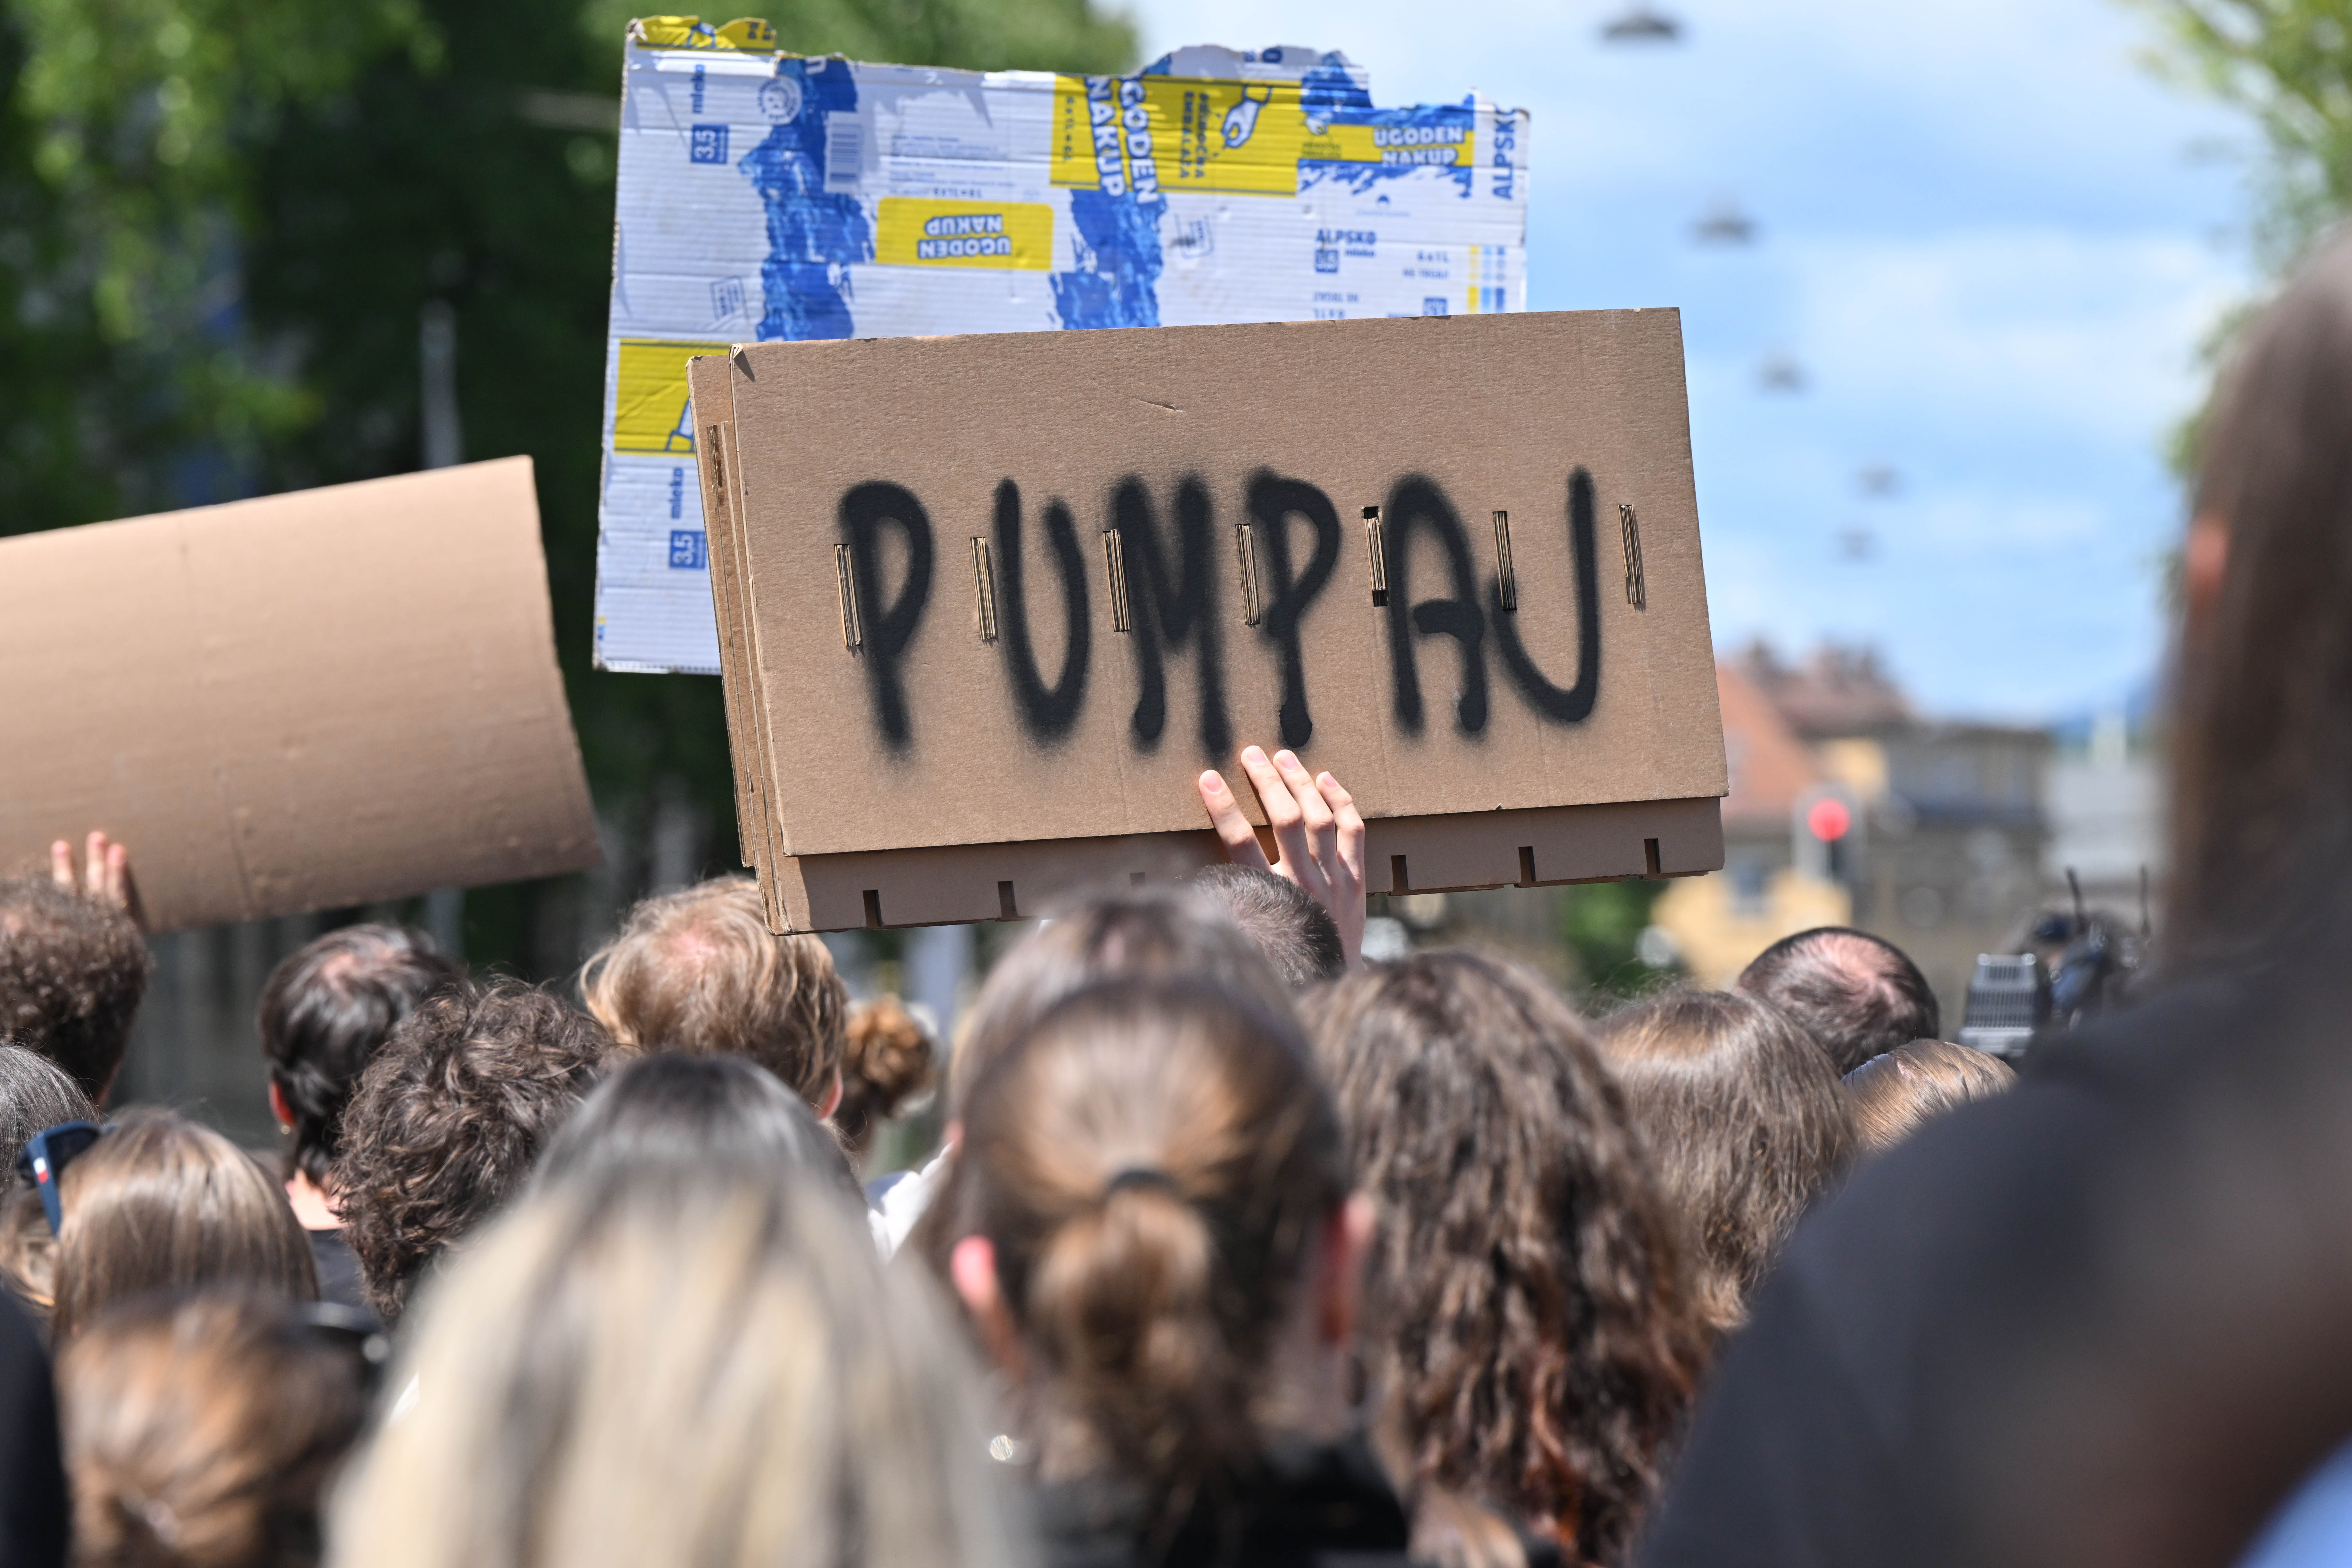 mleko
3,5
UGODEN
NAKUP
UGODEN
NAKUP
ALPSKO
UGODEN
NAKUP
ALPSKO
mleko
mleko
3,5
PUMPAJ